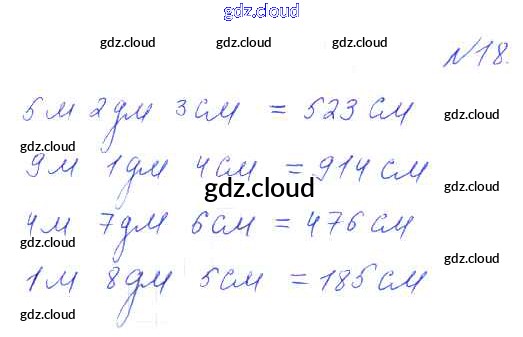 gdz.cloud
gdz.cloud gdz.cloud gdz.cloud
№18.
5м 2дм 3см = 523см
gdz.cloud
gdz.cloud
9м 1дм 4см = 914см
gdz.cloud
gdz.cloud
gdz.cloud
4м 7дм 6см = 476см
gdz.cloud
gdz.cloud
1м 8дм 5см = 185см
gdz.cloud gdz.cloud gdz.cloud